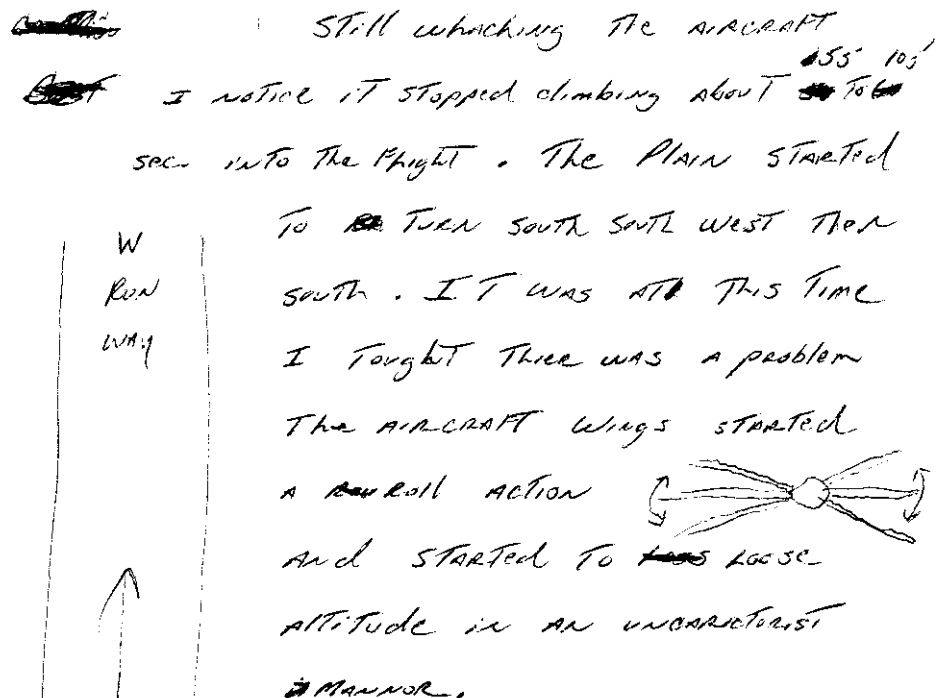 Still whaching The AIRCRAFT
I notice iT stopped climbing about 55 To
sec. into The Flight. The Plain STARTed
To Turn south south west then
south. IT was at This Time
I Tought Thier was a problem
The AIRCRAFT wings STARTed
a Roll ACTION
And STARTed To Loose
Altitude in AN uncarictorist
Mannor.
W
RUN
WAY